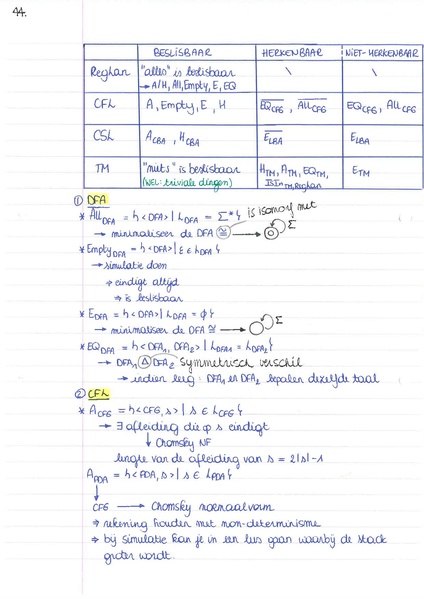 44.
BESLISBAAR HERKENBAAR NIET-HERKENBAAR
Reglan "alles" is beslisbaar \ \
→ A/H, All, Empty, E, EQ
CFL A, Empty, E, H E̅Q̅_CFG, A̅l̅l̅_CFG EQ_CFG, All_CFG
CSL A_CBA, H_CBA E̅_LBA E_LBA
TM "niets" is beslisbaar H_TM, A_TM, EQ_TM, E_TM
(WEL: triviale dingen) IsIn_TM,Reglan
① DFA
* All_DFA = {<DFA> | L_DFA = Σ*} is isomorf met
→ minimaliseer de DFA ≅ → Σ
* Empty_DFA = {<DFA> | ε ∈ L_DFA}
→ simulatie doen
⇒ eindigt altijd
⇒ is beslisbaar
* E_DFA = {<DFA> | L_DFA = ϕ}
→ minimaliseer de DFA ≅ → Σ
* EQ_DFA = {<DFA₁, DFA₂> | L_DFA1 = L_DFA2}
→ DFA₁ Δ DFA₂ symmetrisch verschil
→ indien leeg: DFA₁ en DFA₂ bepalen dezelfde taal
② CFL
* A_CFG = {<CFG, s> | s ∈ L_CFG}
→ ∃ afleiding die op s eindigt
↓ Chomsky NF
lengte van de afleiding van s = 2|s|-1
A_PDA = {<PDA, s> | s ∈ L_PDA}
↓
CFG → Chomsky normaalvorm
⇒ rekening houden met non-determinisme
⇒ bij simulatie kan je in een lus gaan waarbij de stack
groter wordt.